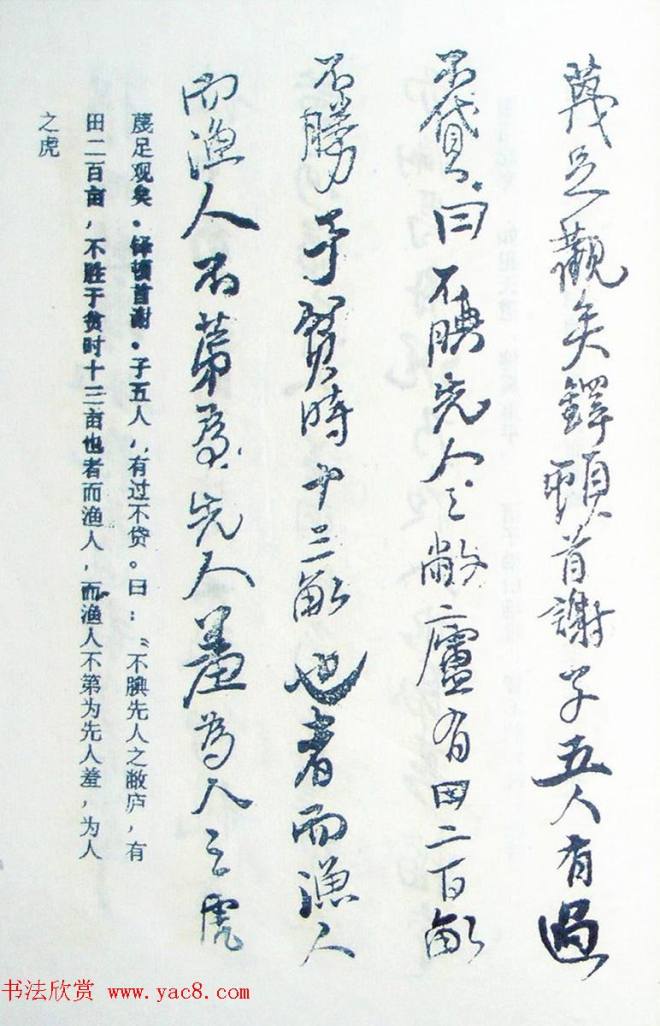 蔑足觀矣鐸頓首謝子五人有過
不貸曰不腆先人之敝廬有田二百畝
不勝于貧時十三畝也者而漁人
而漁人不第為先人羞為人之虎
蔑足观矣。铎顿首谢。子五人，有过不贷。曰：“不腆先人之敝庐，有
田二百亩，不胜于贫时十三亩也者而渔人，而渔人不第为先人羞，为人
之虎
书法欣赏 www.yac8.com